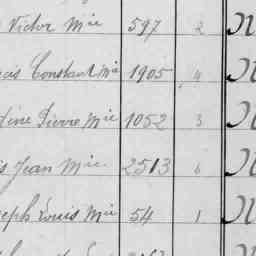 Victor Mie 597 2 N
cis Constant Mie 1905 4 N
Pierre Mie 1052 3 N
s Jean Mie 2513 6 N
seph Louis Mie 54 1 N